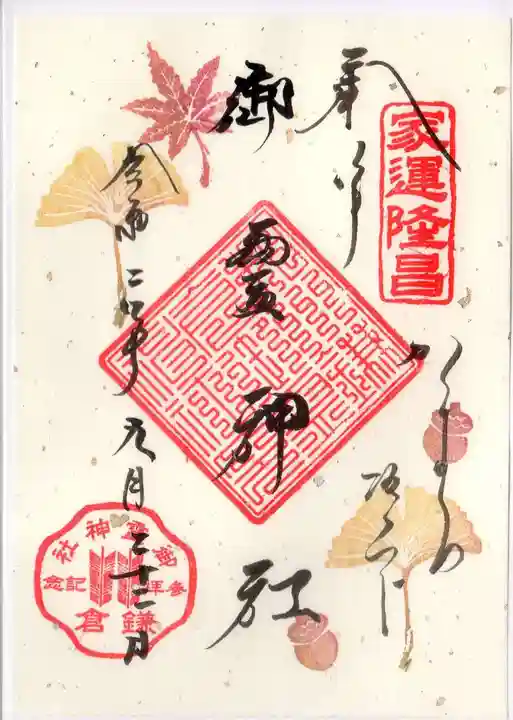 家運隆昌
奉拝
かまくら
坂の下
御靈神社
令和二年九月二十二日
御靈神社
参拝記念
鎌倉